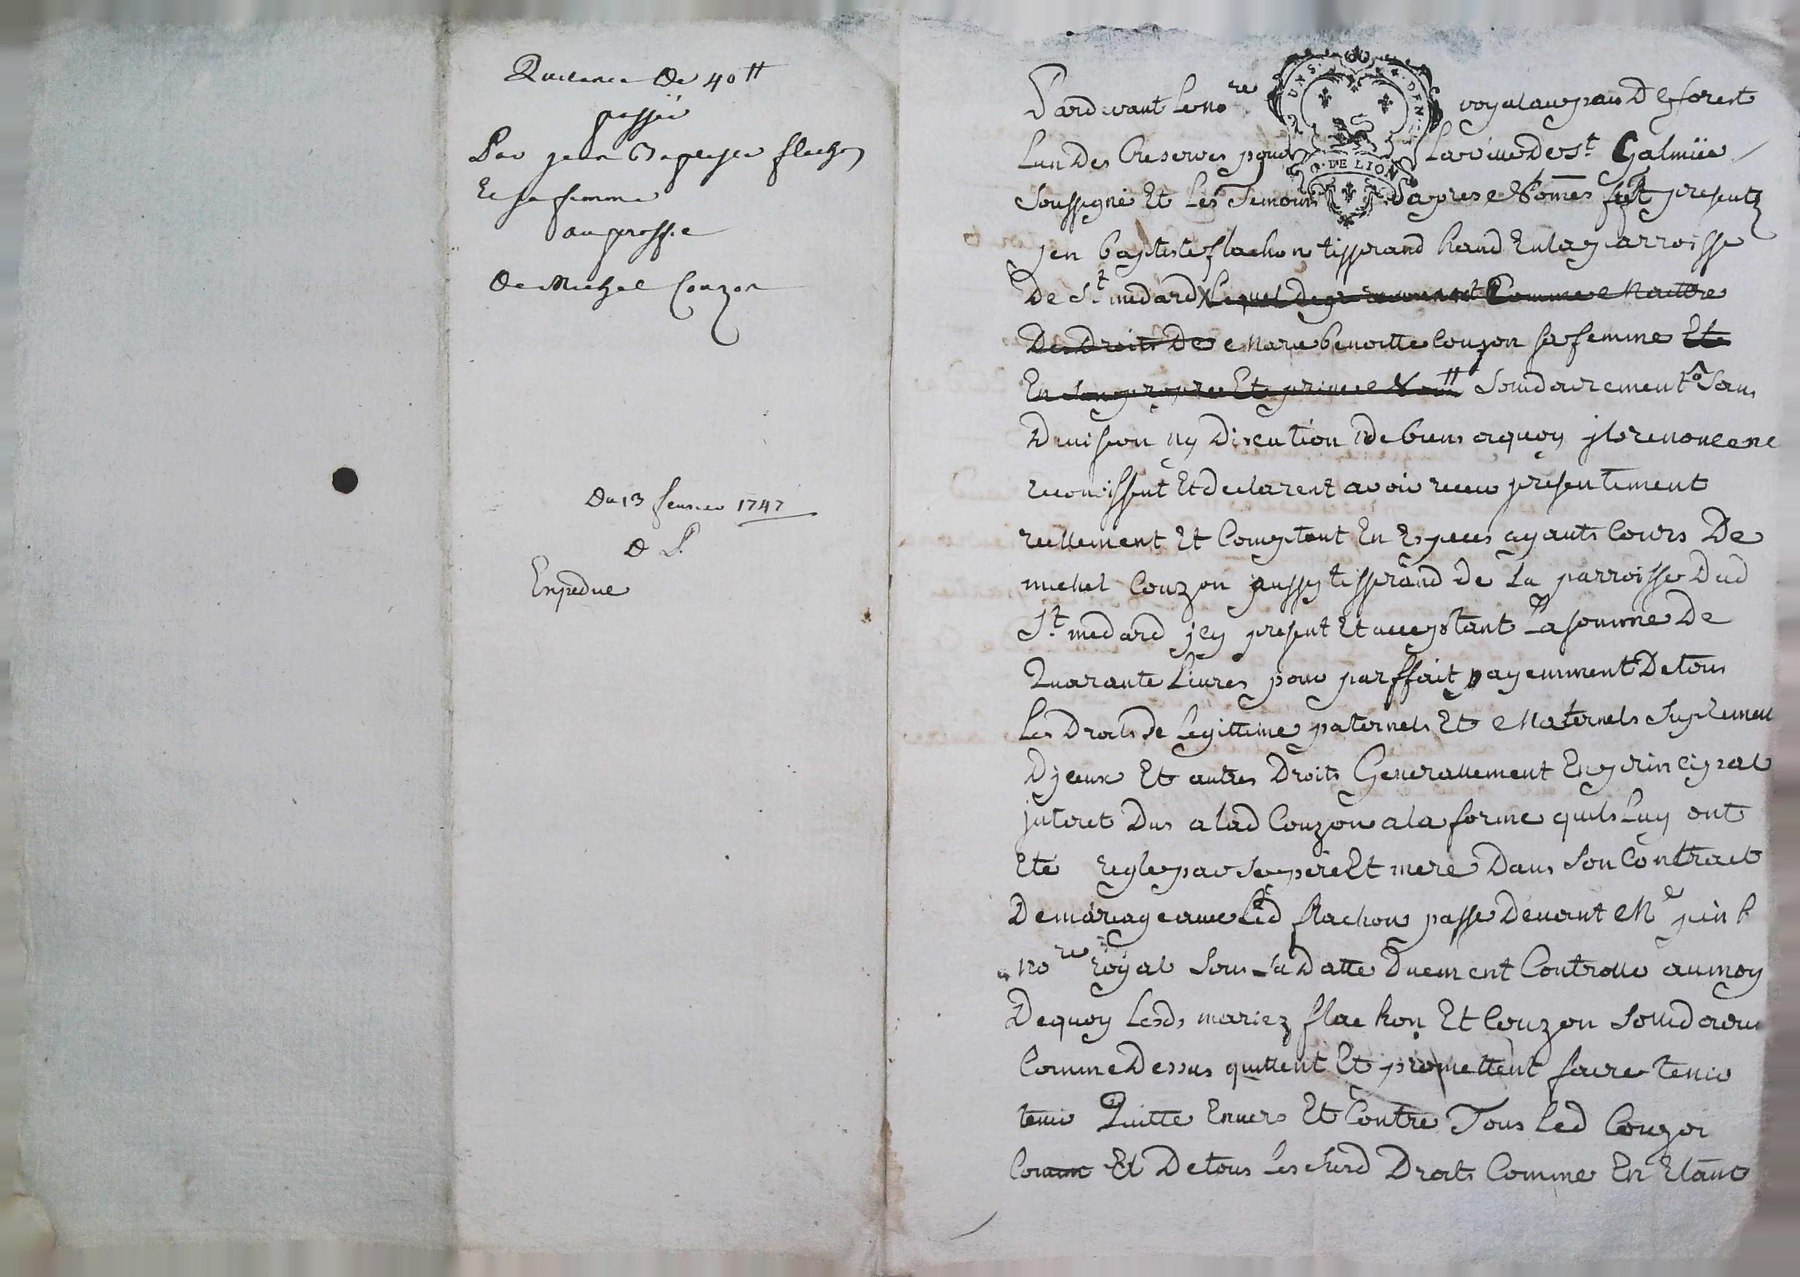 Quittance de 40tt
passée
Par jean Baptiste flachon
Et sa femme
au proffit
de Michel Couzon
du 13 feuvrier 1747
D P.
Expediee
Pardevant le nore royal au pais De forest
Lun Des Reserves pour la ville De St. Galmier
Soussigné Et Les Temoins Cy apres Nommés fut presents
jen baptiste flachon tisserand habitant En la parroisse
De St. medard Lequel De gre Comme Maittre
Des Droits De Marie benoitte Couzon sa femme Et
En son propre Et prive Nom solidairement Sans
Division ny Discution De biens a quoy ils renoncent
reconoissent Et declarent avoir receu presentement
reellement Et Comptant En Especes ayants Cours De
michel Couzon aussy tisserand de La parroisse Dud
St. medard jcy present Et acceptant La somme De
Quarante Livres pour parffait payemment De tous
Les Droits De Legittime paternels Et Maternels Suplement
Djceux Et autres Droits Generallement En principal
jnteret Dus a lad Couzon a la forme quils Luy ont
Ete regle par Ses pere Et mere Dans Son Contract
De mariage avec Led flachon passé Devant Me
nore Royal Sous Sa Datte Duement Controlle au moyen
De quoy Lesds mariez flachon Et Couzon solidaires
Comme Dessus quittent Et promettent faire tenir
tenir Quitte Envers Et Contre Tous Led Couzon
Et De tous Les susd Droits Comme En Etant